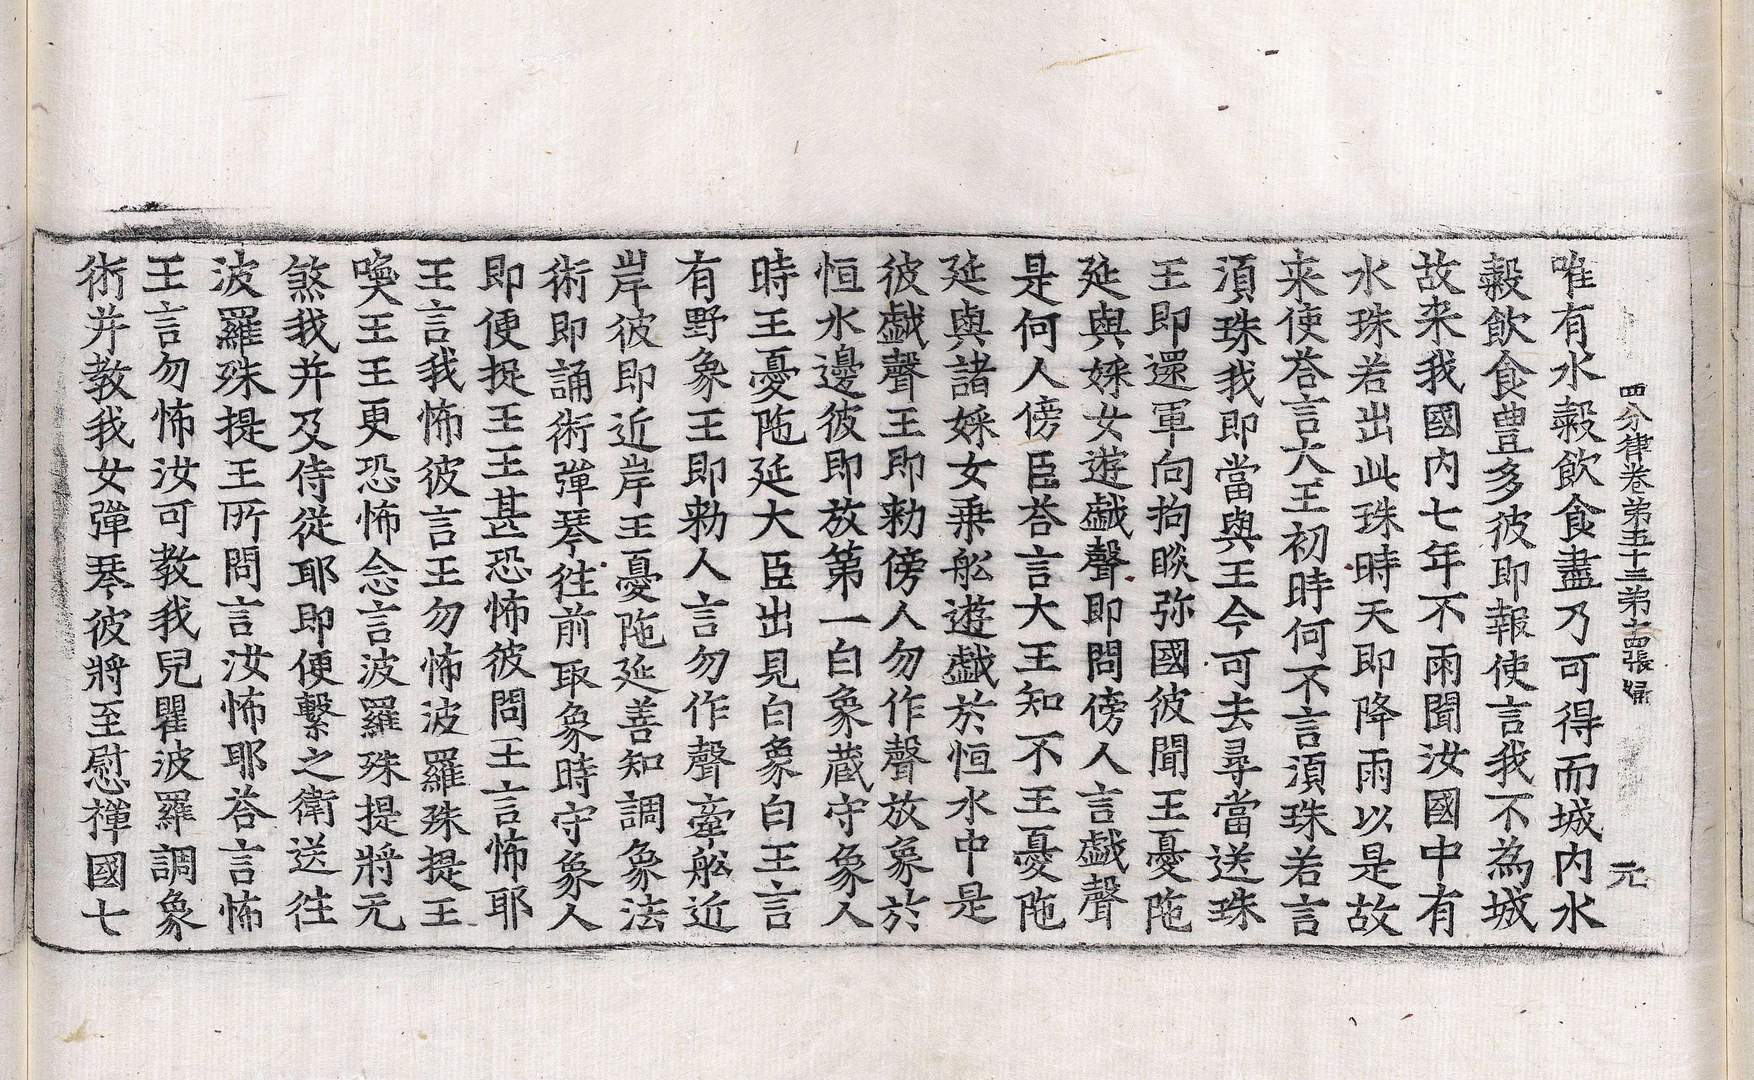 四分律卷第五十三第十四張 婦 元
唯有水糓飲食盡乃可得而城内水
糓飲食豊多彼即報使言我不為城
故来我國内七年不雨聞汝國中有
水珠若出此珠時天即降雨以是故
来使荅言大王初時何不言須珠若言
須珠我即當與王今可去尋當送珠
王即還軍向拘睒弥國彼聞王憂陁
延與婇女遊戱聲即問傍人言戱聲
是何人傍臣荅言大王知不王憂陁
延與諸婇女乗舩遊戱於恒水中是
彼戱聲王即勑傍人勿作聲放象於
恒水邊彼即放第一白象蔵守象人
時王憂陁延大臣出見白象白王言
有野象王即勑人言勿作聲牽舩近
岸彼即近岸王憂陁延善知調象法
術即誦術彈琴徃前取象時守象人
即便捉王王甚恐怖彼問王言怖耶
王言我怖彼言王勿怖波羅殊提王
喚王王更恐怖念言波羅殊提將无
煞我并及侍從耶即便繫之衛送徃
波羅殊提王所問言汝怖耶荅言怖
王言勿怖汝可教我兒瞿波羅調象
術并教我女彈琴彼將至慰禪國七